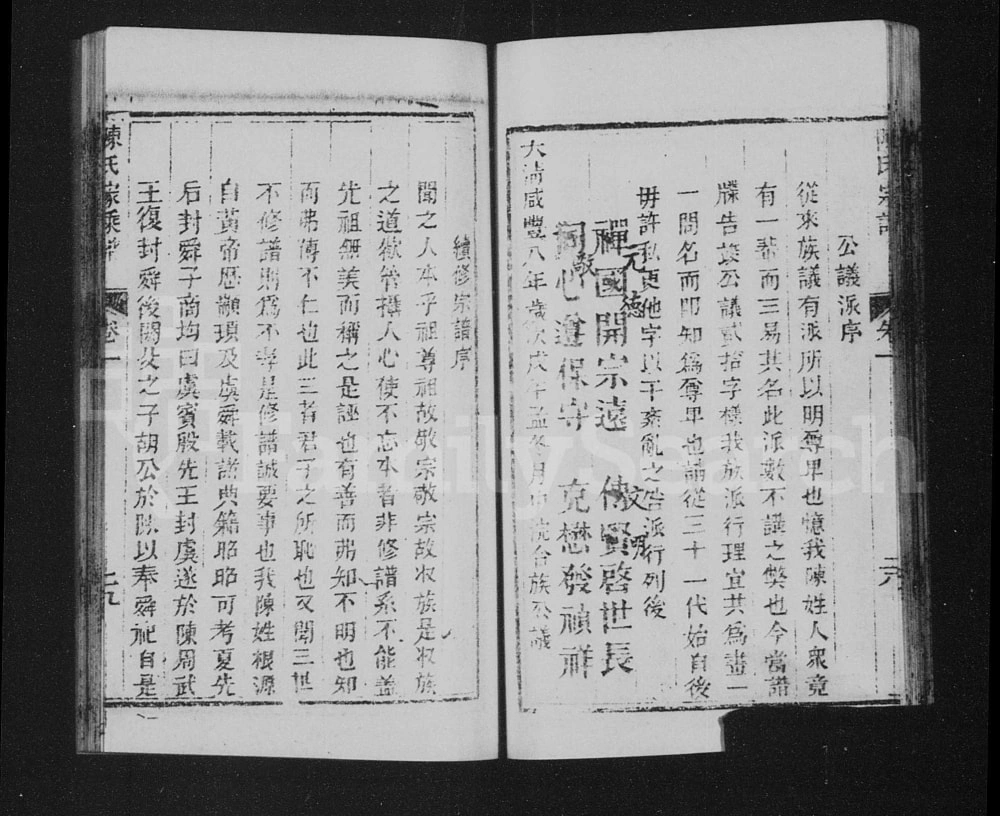 陳氏宗譜
卷一
六
公議派序
從來族議有派所以明尊卑也憶我陳姓人衆竟
有一輩而三易其名此派數不謹之獘也今當譜
牒告竣公議貳拾字樣我族派行理宜共爲畫一
一問名而即知爲尊卑也誦從三十一代始自後
毋許私更他字以干紊亂之咎派行列後
元德 文明
禪國開宗遠 傳賢啓世長
敬
同心遵保守 克懋發禎祥
大淸咸豐八年歲次戊午孟冬月中浣合族公議
續修宗譜序
聞之人本乎祖尊祖故敬宗敬宗故収族是収族
之道欲管攝人心使不忘本者非修譜系不能蓋
先祖無美而稱之是誣也有善而弗知不明也知
而弗傳不仁也此三者君子之所恥也又聞三世
不修譜則爲不孝是修譜誠要事也我陳姓根源
自黃帝歷顓頊及虞舜載諸典籍昭昭可考夏先
后封舜子商均曰虞賓殷先王封虞遂於陳周武
王復封舜後閼父之子胡公於陳以奉舜祀自是
陳氏家乘譜
卷一
二九
FamilySearch